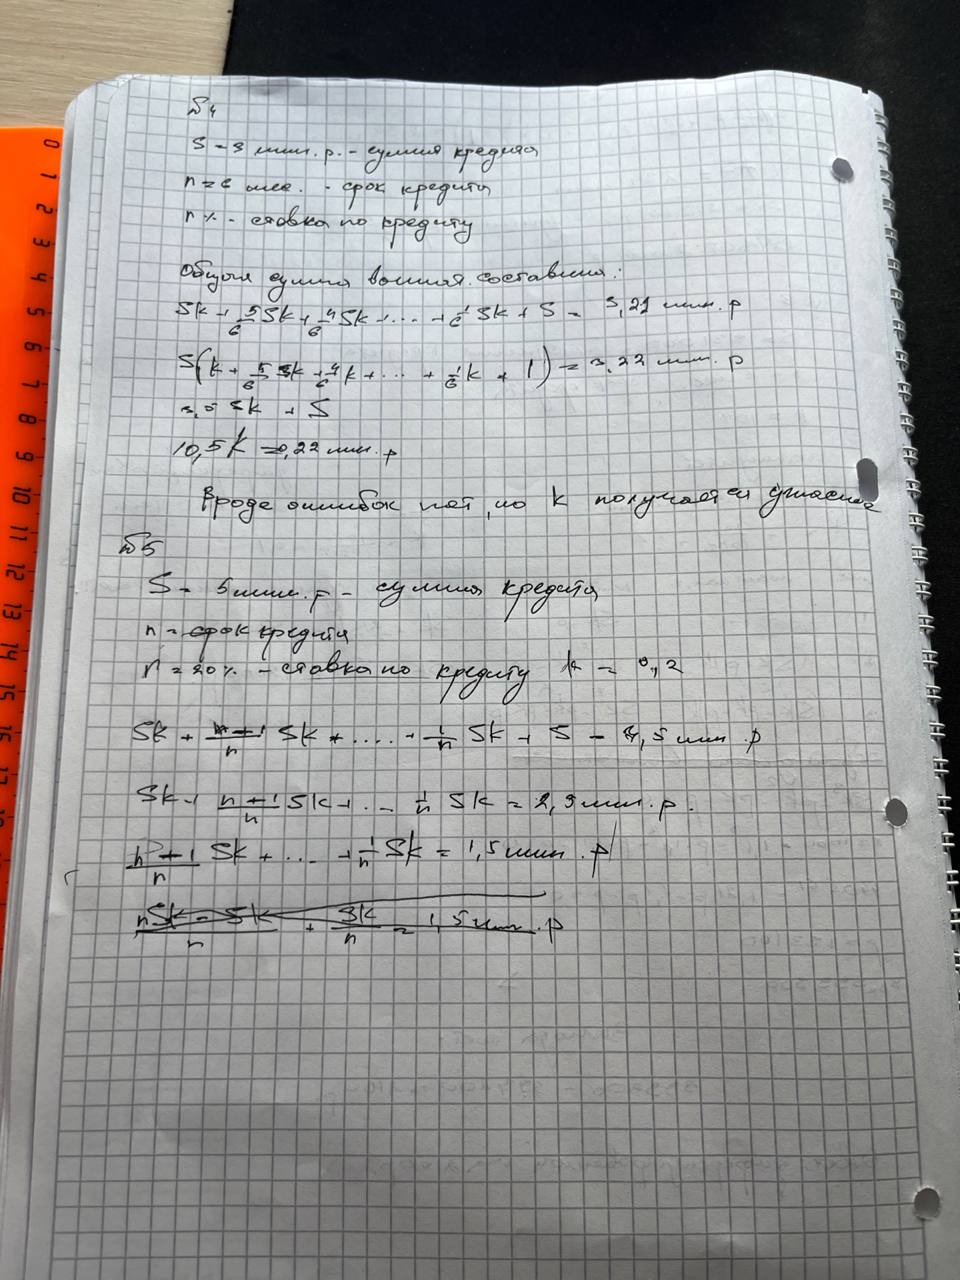 №4
S - 3 млн. р. - сумма кредита
n = 6 мес. - срок кредита
r% - ставка по кредиту
Общая сумма выплат составила:
Sk + 5/6 Sk + 4/6 Sk + ... + 1/6 Sk + S = 3,21 млн. р
S(k + 5/6 k + 4/6 k + ... + 1/6 k + 1) = 3,22 млн. р
3,5 Sk + S
10,5k = 0,22 млн. р
Вроде ошибок нет, но k получается ужасное
№5
S - 5 млн. р - сумма кредита
n - срок кредита
r = 20% - ставка по кредиту k = 0,2
Sk + n-1/n Sk + .... + 1/n Sk + S - 7,5 млн. р
Sk + n+1/n Sk + ... 1/n Sk = 2,5 млн. р.
n-1/n Sk + ... + 1/n Sk = 1,5 млн. р
nSk - Sk/n + Sk/n = 1,5 млн. р
0 1 2 3 4 5 6 7 8 9 10 11 12 13 14 15 16 17